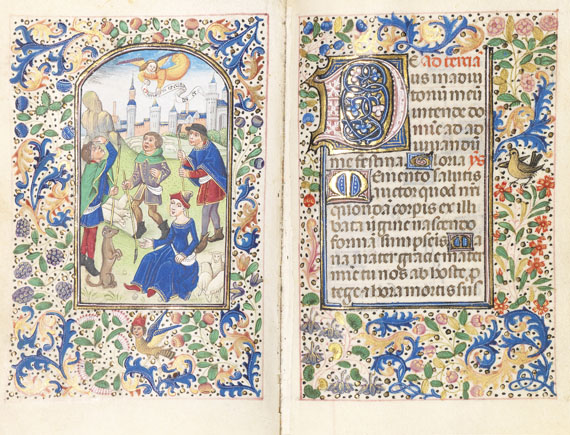 DE ad tercia
us in adiu
toriū meū
intende do
mie ad ad
iuuandū
me festina. Gloria ys
Memento salutis
auctor quod nr̄i
quondā corpis ex illi
bata ūgine nascendo
formā sumpseis Ma
ria mater gracie mater
mie tu nos ab hoste p
tege hora mortis sus